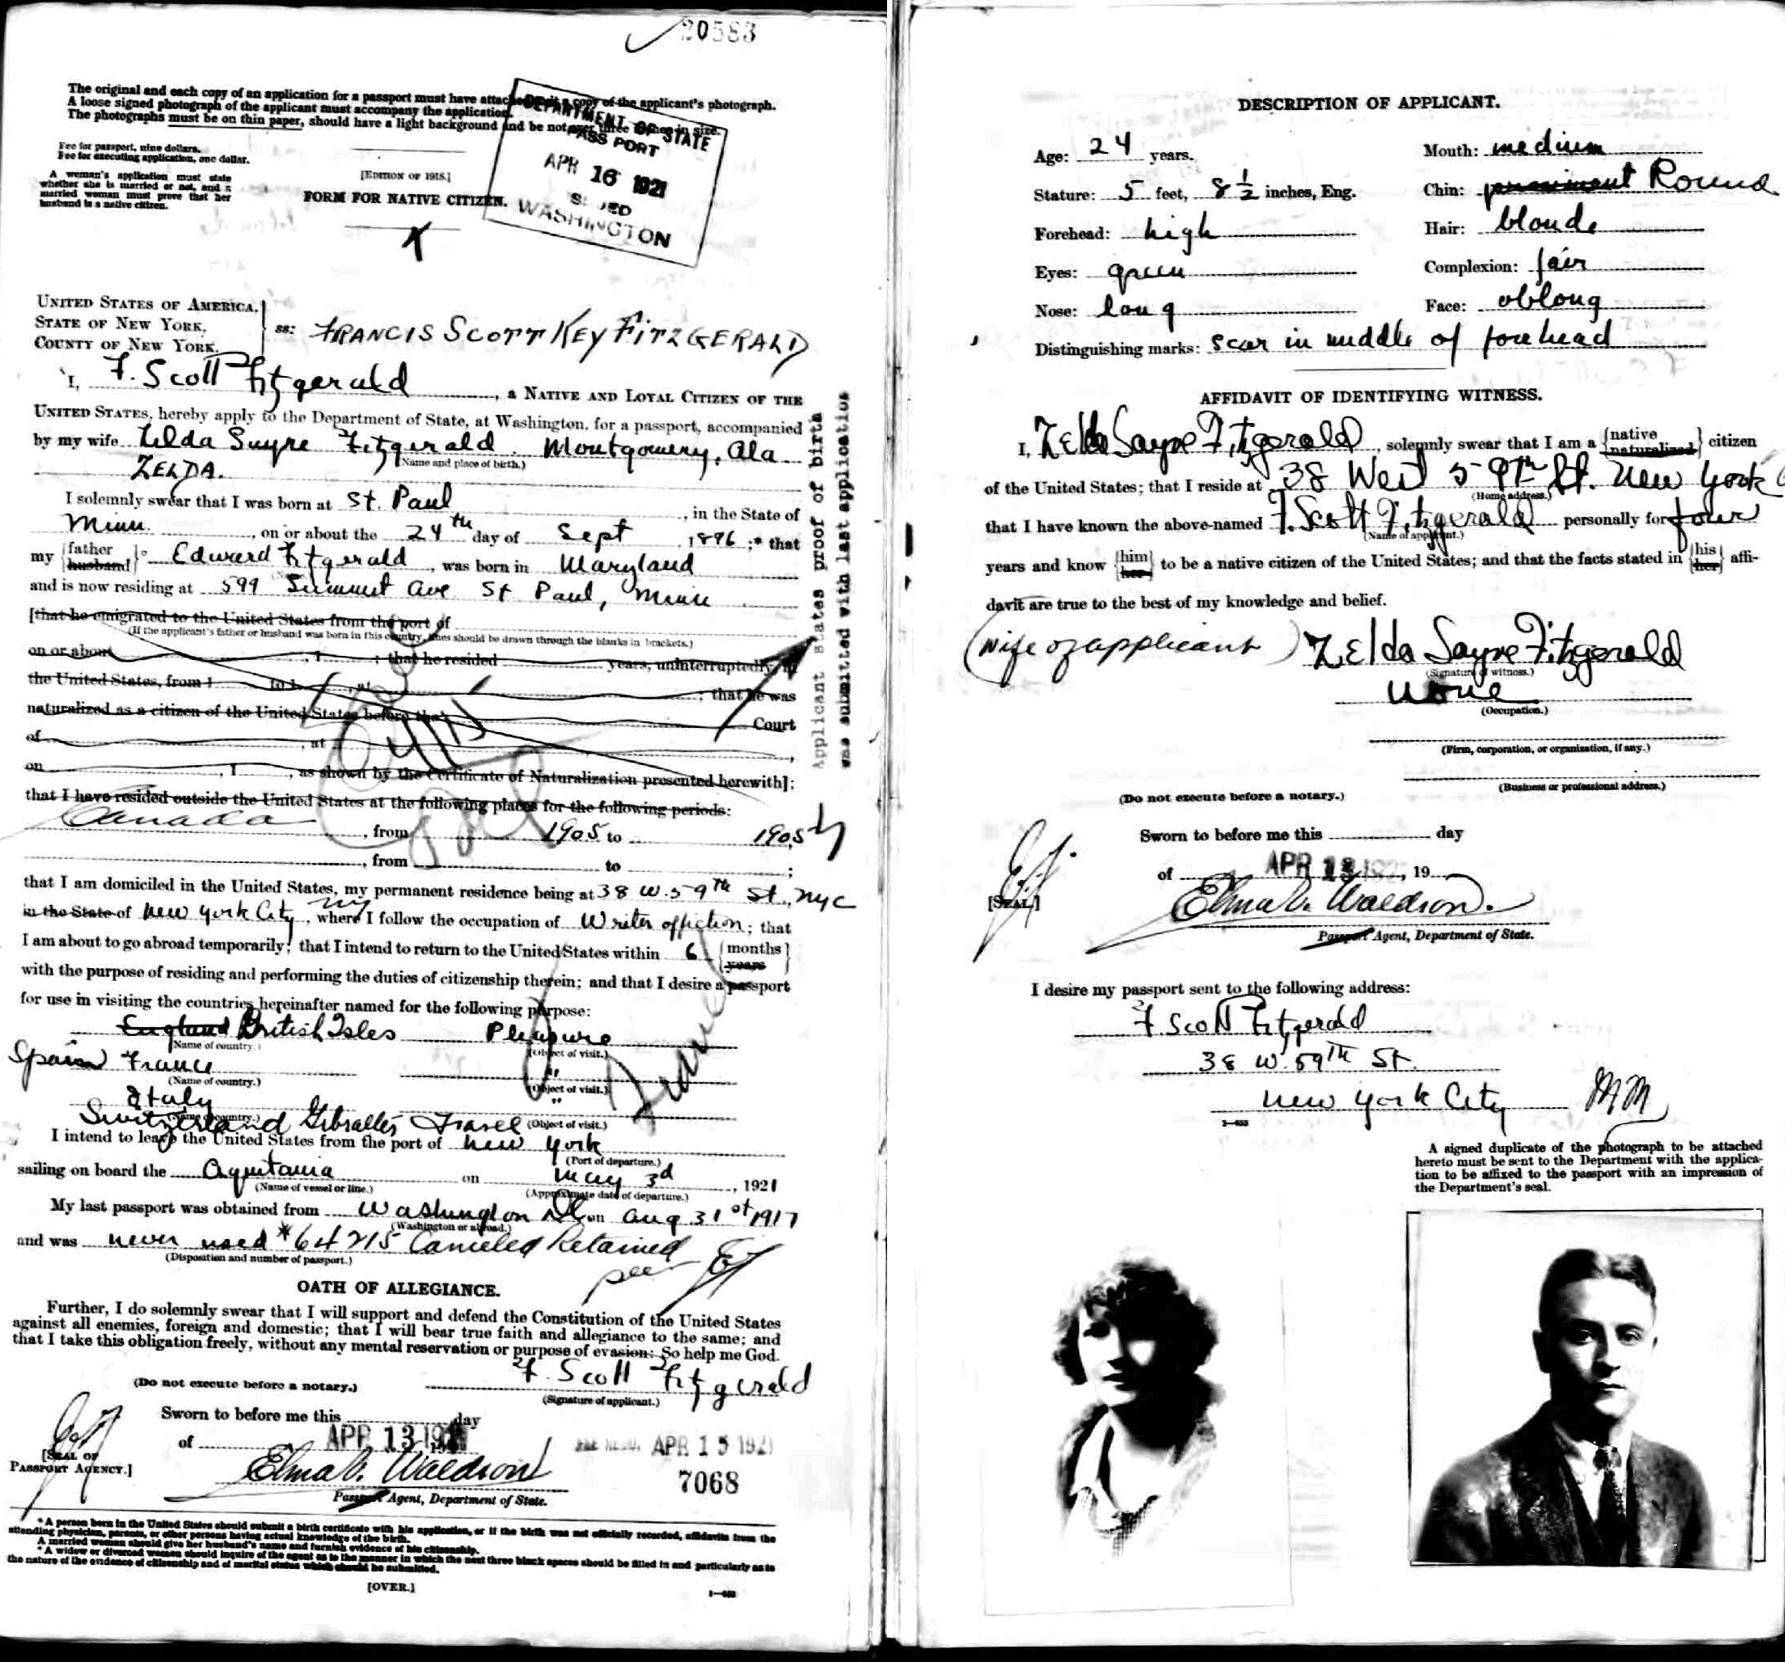 20583
The original and each copy of an application for a passport must have attached to it a copy of the applicant's photograph.
A loose signed photograph of the applicant must accompany the application.
The photographs must be on thin paper, should have a light background and be not over three inches in size.
Fee for passport, nine dollars.
Fee for executing application, one dollar.
A woman's application must state
whether she is married or not, and a
married woman must prove that her
husband is a native citizen.
[EDITION OF 1918.]
FORM FOR NATIVE CITIZEN.
DEPARTMENT OF STATE
PASSPORT
APR 16 1921
ISSUED
WASHINGTON
UNITED STATES OF AMERICA,
STATE OF NEW YORK,
COUNTY OF NEW YORK,
ss: FRANCIS SCOTT KEY FITZGERALD
I, F. Scott Fitzgerald, a NATIVE AND LOYAL CITIZEN OF THE
UNITED STATES, hereby apply to the Department of State, at Washington, for a passport, accompanied
by my wife Zelda Sayre Fitzgerald. Montgomery, Ala
(Name and place of birth.)
ZELDA.
I solemnly swear that I was born at St. Paul, in the State of
Minn., on or about the 24th day of Sept, 1896;* that
my {father husband} Edward Fitzgerald, was born in Maryland
and is now residing at 599 Summit Ave St Paul, Minn
[that he emigrated to the United States from the port of
(If the applicant's father or husband was born in this country, lines should be drawn through the blanks in brackets.)
on or about , 1 ; that he resided years, uninterruptedly, in
the United States, from 1 to 1 , at ; that he was
naturalized as a citizen of the United States before the Court
of , at ,
on , 1 , as shown by the Certificate of Naturalization presented herewith];
that I have resided outside the United States at the following places for the following periods:
Canada, from 1905 to 1905
, from to ;
that I am domiciled in the United States, my permanent residence being at 38 W. 59th St., NYC
in the State of New York City, NY, where I follow the occupation of Writer of fiction; that
I am about to go abroad temporarily; that I intend to return to the United States within 6 {months years}
with the purpose of residing and performing the duties of citizenship therein; and that I desire a passport
for use in visiting the countries hereinafter named for the following purpose:
England British Isles Pleasure
(Name of country.) (Object of visit.)
Spain France "
(Name of country.) (Object of visit.)
Italy "
Switzerland Gibralter Travel
(Name of country.) (Object of visit.)
I intend to leave the United States from the port of New York
(Port of departure.)
sailing on board the Aquitania on May 3d, 1921
(Name of vessel or line.) (Approximate date of departure.)
My last passport was obtained from Washington D.C. on Aug 31st 1917
(Washington or abroad.)
and was never used #64215 Canceled Retained
(Disposition and number of passport.)
OATH OF ALLEGIANCE.
Further, I do solemnly swear that I will support and defend the Constitution of the United States
against all enemies, foreign and domestic; that I will bear true faith and allegiance to the same; and
that I take this obligation freely, without any mental reservation or purpose of evasion: So help me God.
F. Scott Fitzgerald
(Do not execute before a notary.) (Signature of applicant.)
Sworn to before me this day
of APR 13 1921
[SEAL OF
PASSPORT AGENCY.]
Passport Agent, Department of State.
APR 15 1921
7068
* A person born in the United States should submit a birth certificate with his application, or if the birth was not officially recorded, affidavits from the
attending physician, parents, or other persons having actual knowledge of the birth.
A married woman should give her husband's name and furnish evidence of his citizenship.
* A widow or divorced woman should inquire of the agent as to the manner in which the next three blank spaces should be filled in and particularly as to
the nature of the evidence of citizenship and of marital status which should be submitted.
[OVER.]
Applicant states proof of birth
was submitted with last application
DESCRIPTION OF APPLICANT.
Age: 24 years.
Mouth: medium
Stature: 5 feet, 8 1/2 inches, Eng.
Chin: prominent Round
Forehead: high
Hair: blonde
Eyes: green
Complexion: fair
Nose: long
Face: oblong
Distinguishing marks: scar in middle of forehead
AFFIDAVIT OF IDENTIFYING WITNESS.
I, Zelda Sayre Fitzgerald, solemnly swear that I am a {native naturalized} citizen
of the United States; that I reside at 38 West 59th St. New York
(Home address.)
that I have known the above-named F. Scott Fitzgerald personally for four
(Name of applicant.)
years and know {him her} to be a native citizen of the United States; and that the facts stated in {his her} affi-
davit are true to the best of my knowledge and belief.
(Wife of applicant) Zelda Sayre Fitzgerald
(Signature of witness.)
none
(Occupation.)
(Firm, corporation, or organization, if any.)
(Business or professional address.)
(Do not execute before a notary.)
Sworn to before me this day
of APR 13 192 , 19
[SEAL]
Passport Agent, Department of State.
I desire my passport sent to the following address:
F Scott Fitzgerald
38 W. 59th St.
New York City
A signed duplicate of the photograph to be attached
hereto must be sent to the Department with the applica-
tion to be affixed to the passport with an impression of
the Department's seal.